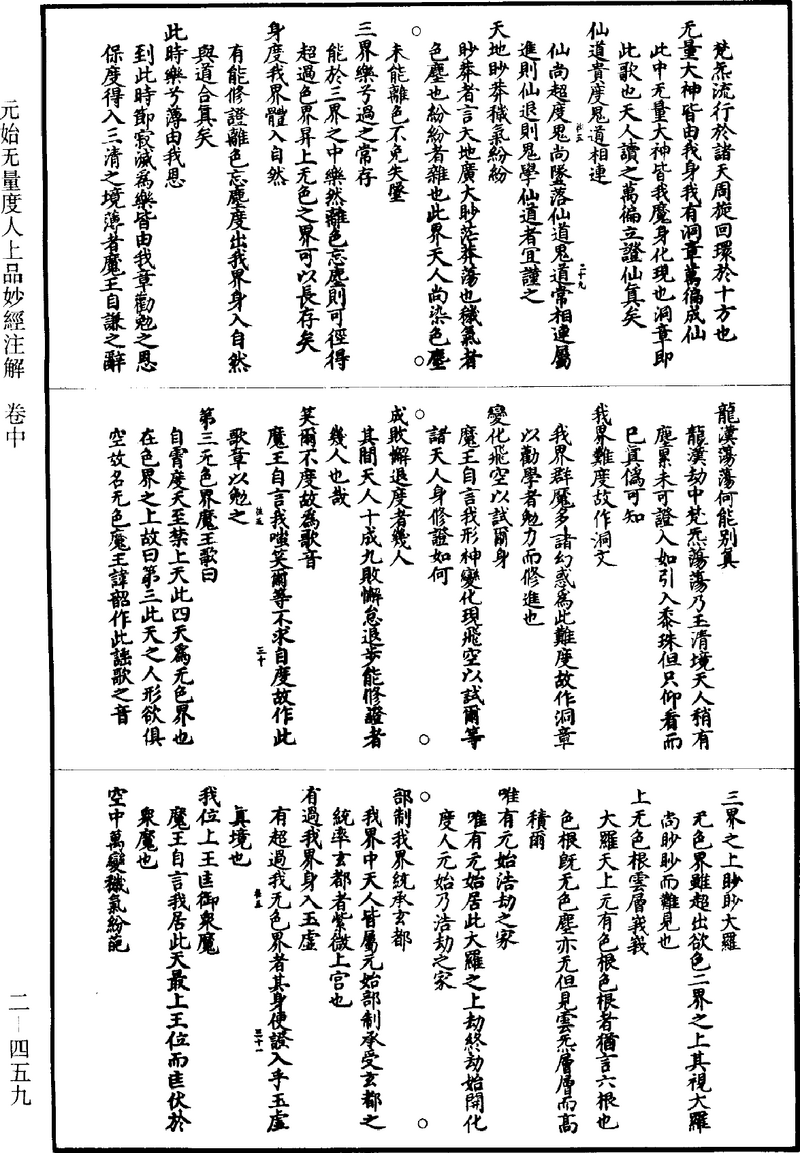 梵炁流行於諸天周旋回環於十方也
无量大神皆由我身我有洞章萬徧成仙
此中无量大神皆我魔身化現也洞章即
此歌也天人讀之萬徧立證仙眞矣
仙道貴度鬼道相連
仙尚超度鬼尚墜落仙道鬼道常相連屬
進則仙退則鬼學仙道者宜謹之
天地眇莽穢氣紛紛
眇莽者言天地廣大眇茫莽蕩也穢氣者
色塵也紛紛者雜也此界天人尚染色塵
未能離色不免失墜
三界樂兮過之常存
能於三界之中樂然離色忘塵則可徑得
超過色界昇上无色之界可以長存矣
身度我界體入自然
有能修證離色忘塵度出我界身入自然
與道合眞矣
此時樂兮薄由我恩
到此時卽寂滅爲樂皆由我章勸勉之恩
保度得入三清之境薄者魔王自謙之辭
龍漢蕩蕩何能別眞
龍漢劫中梵炁蕩蕩乃玉清境天人稍有
塵累未可證入如引入黍珠但只仰看而
已眞僞可知
我界難度故作洞文
我界群魔多諸幻惑爲此難度故作洞章
以勸學者勉力而修進也
變化飛空以試爾身
魔王自言我形神變化現飛空以試爾等
諸天人身修證如何
成敗懈退度者幾人
其間天人十成九敗懈怠退步能修證者
幾人也哉
笑爾不度故爲歌音
魔王自言我嗤笑爾等不求自度故作此
歌章以勉之
第三无色界魔王歌曰
自霄度天至禁上天此四天爲无色界也
在色界之上故曰第三此天之人形欲俱
空故名无色魔王諱韶作此謠歌之音
三界之上眇眇大羅
无色界雖超出欲色二界之上其視大羅
尚眇眇而難見也
上无色根雲層峩峩
大羅天上元有色根色根者猶言六根也
色根旣无色塵亦无但見雲炁層層而高
積爾
唯有元始浩劫之家
唯有元始居此大羅之上劫終劫始開化
度人元始乃浩劫之家
部制我界統承玄都
我界中天人皆屬元始部制承受玄都之
統率玄都者紫微上宫也
有過我界身入玉虛
有超過我无色界者其身便證入乎玉虛
眞境也
我位上王匡御衆魔
魔王自言我居此天最上王位而匡伏於
衆魔也
空中萬變穢氣紛葩
元始无量度人上品妙經注解 卷中
二—四五九